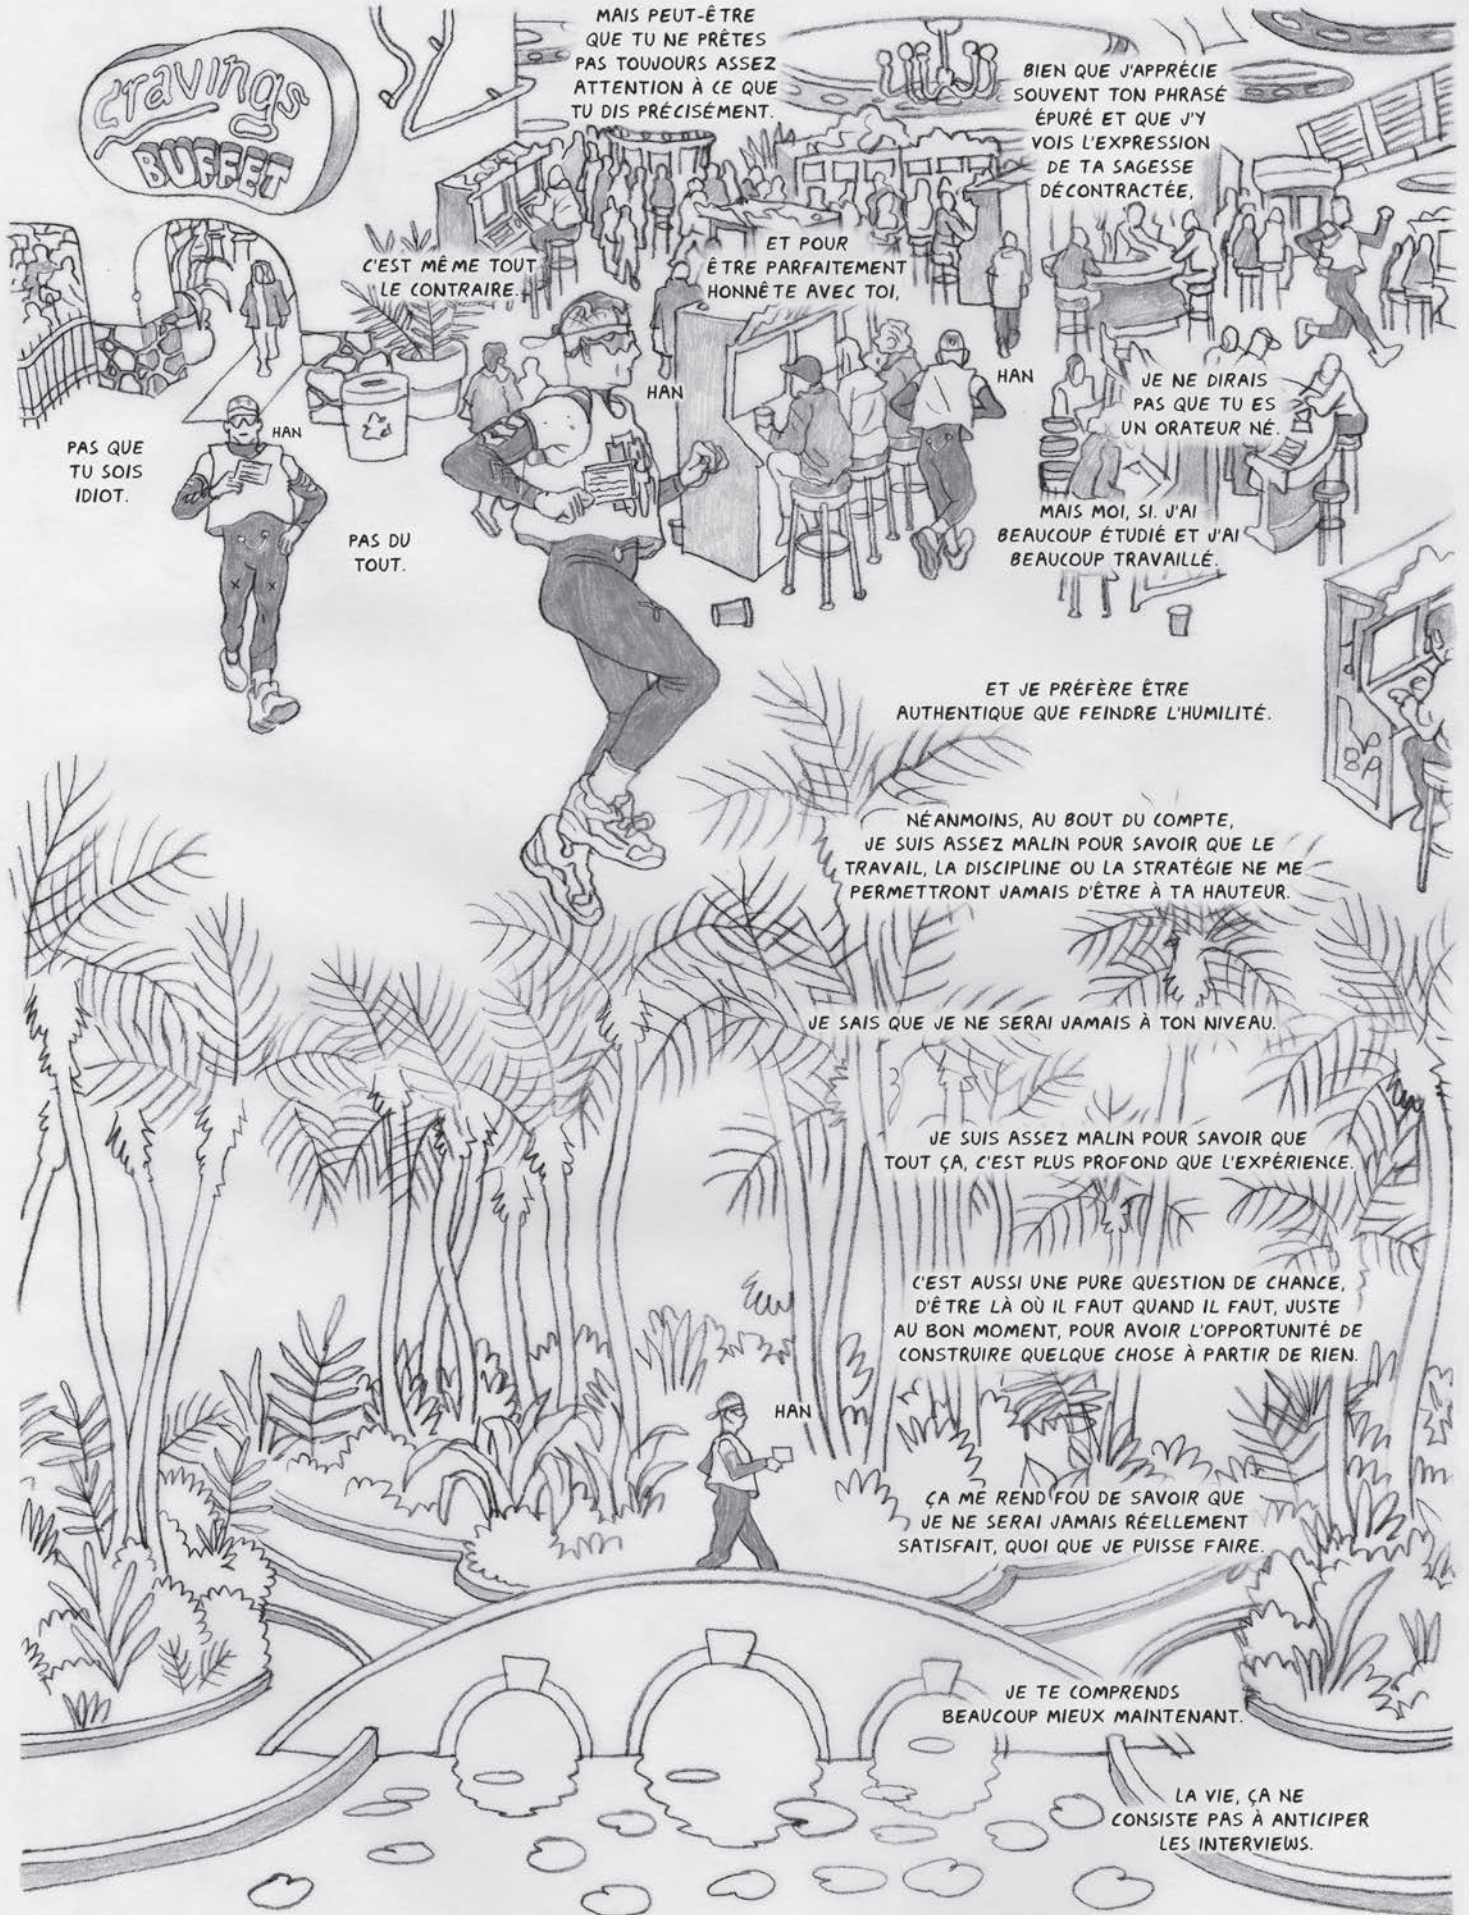 Cravings
BUFFET
PAS QUE
TU SOIS
IDIOT.
HAN
PAS DU
TOUT.
C'EST MÊME TOUT
LE CONTRAIRE.
MAIS PEUT-ÊTRE
QUE TU NE PRÊTES
PAS TOUJOURS ASSEZ
ATTENTION À CE QUE
TU DIS PRÉCISÉMENT.
HAN
ET POUR
ÊTRE PARFAITEMENT
HONNÊTE AVEC TOI,
HAN
BIEN QUE J'APPRÉCIE
SOUVENT TON PHRASÉ
ÉPURÉ ET QUE J'Y
VOIS L'EXPRESSION
DE TA SAGESSE
DÉCONTRACTÉE,
JE NE DIRAIS
PAS QUE TU ES
UN ORATEUR NÉ.
MAIS MOI, SI. J'AI
BEAUCOUP ÉTUDIÉ ET J'AI
BEAUCOUP TRAVAILLÉ.
ET JE PRÉFÈRE ÊTRE
AUTHENTIQUE QUE FEINDRE L'HUMILITÉ.
NÉANMOINS, AU BOUT DU COMPTE,
JE SUIS ASSEZ MALIN POUR SAVOIR QUE LE
TRAVAIL, LA DISCIPLINE OU LA STRATÉGIE NE ME
PERMETTRONT JAMAIS D'ÊTRE À TA HAUTEUR.
JE SAIS QUE JE NE SERAI JAMAIS À TON NIVEAU.
JE SUIS ASSEZ MALIN POUR SAVOIR QUE
TOUT ÇA, C'EST PLUS PROFOND QUE L'EXPÉRIENCE.
C'EST AUSSI UNE PURE QUESTION DE CHANCE,
D'ÊTRE LÀ OÙ IL FAUT QUAND IL FAUT, JUSTE
AU BON MOMENT, POUR AVOIR L'OPPORTUNITÉ DE
CONSTRUIRE QUELQUE CHOSE À PARTIR DE RIEN.
HAN
ÇA ME REND FOU DE SAVOIR QUE
JE NE SERAI JAMAIS RÉELLEMENT
SATISFAIT, QUOI QUE JE PUISSE FAIRE.
JE TE COMPRENDS
BEAUCOUP MIEUX MAINTENANT.
LA VIE, ÇA NE
CONSISTE PAS À ANTICIPER
LES INTERVIEWS.